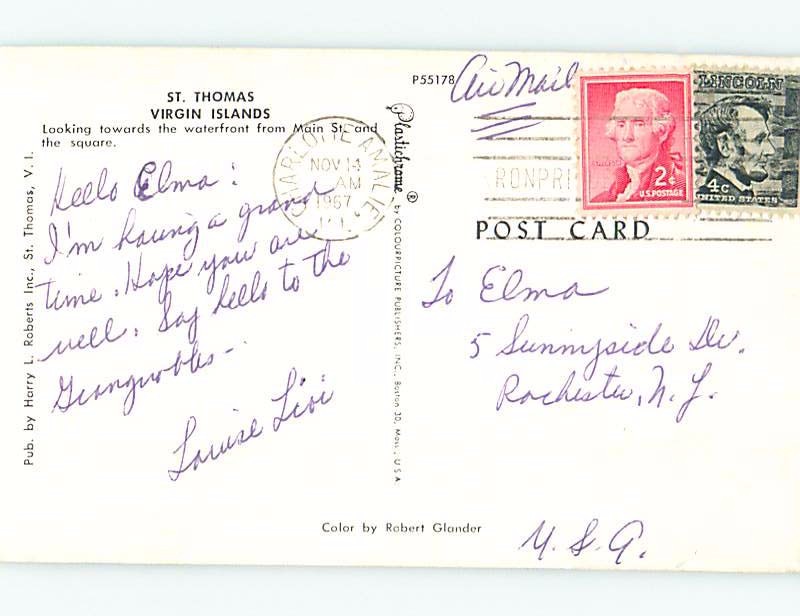 ST. THOMAS
VIRGIN ISLANDS
Looking towards the waterfront from Main St. and
the square.
Hello Elma:
I'm having a grand
time. Hope you are
well. Say hello to the
Louise Livi
Pub. by Harry L. Roberts Inc., St. Thomas, V. I.
CHARLOTTE AMALIE,
NOV 14
AM
1967
V.I.
Plastichrome ® by COLOURPICTURE PUBLISHERS, INC., Boston 30, Mass., U S A
P55178
Air Mail
RONPRI
2¢
U.S. POSTAGE
LINCOLN
4c
UNITED STATES
POST CARD
To Elma
5 Sunnyside Dr.
Rochester, N.Y.
U.S.A.
Color by Robert Glander